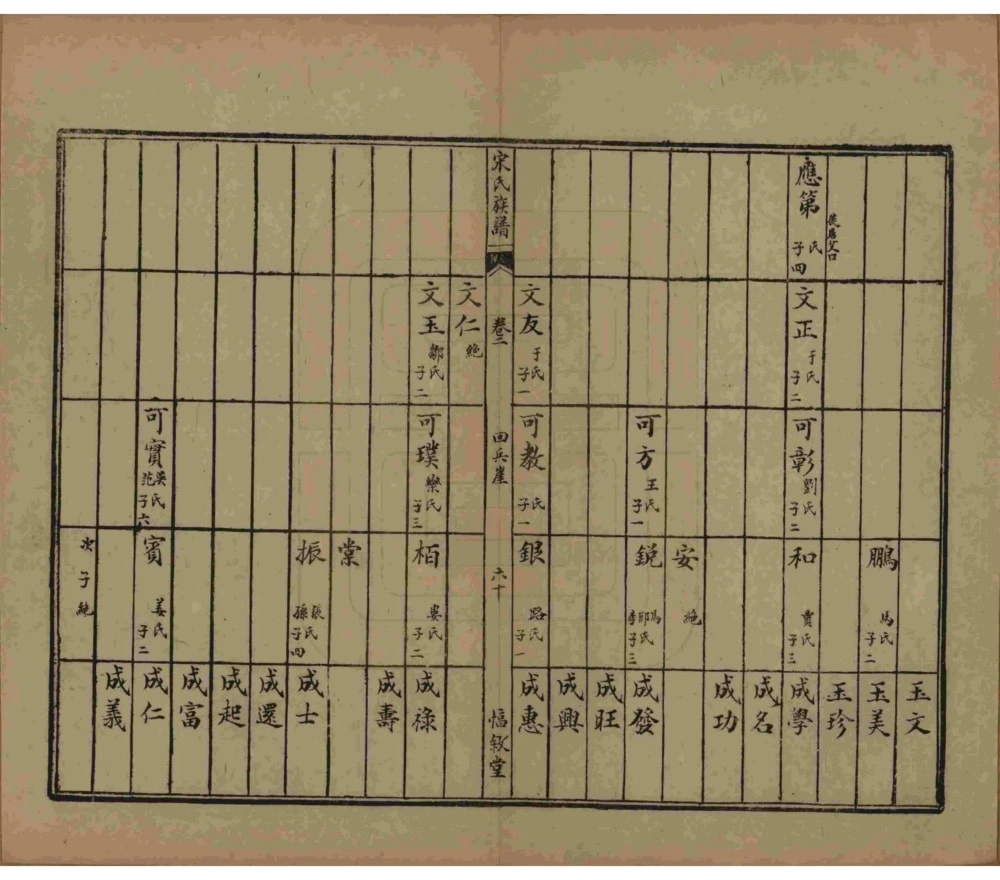 應第 氏 子四
文正 于氏 子二
文友 于氏 子一
可彰 劉氏 子二
可方 王氏 子一
可教 氏 子一
鵬 馬氏 子二
和 賈氏 子三
安 絶
銳 馮 邱 李氏 子三
銀 路氏 子一
玉文
玉美
玉珍
成學
成名
成功
成發
成旺
成興
成惠
宋氏族譜
卷三
回兵崖
六十
惇敘堂
文仁 絶
文玉 鄒氏 子二
可璞 欒氏 子三
可實 吳 范氏 子六
栢 婁氏 子二
棠
振 張 孫氏 子四
賓 姜氏 子二
次子絶
成祿
成壽
成士
成還
成起
成富
成仁
成義